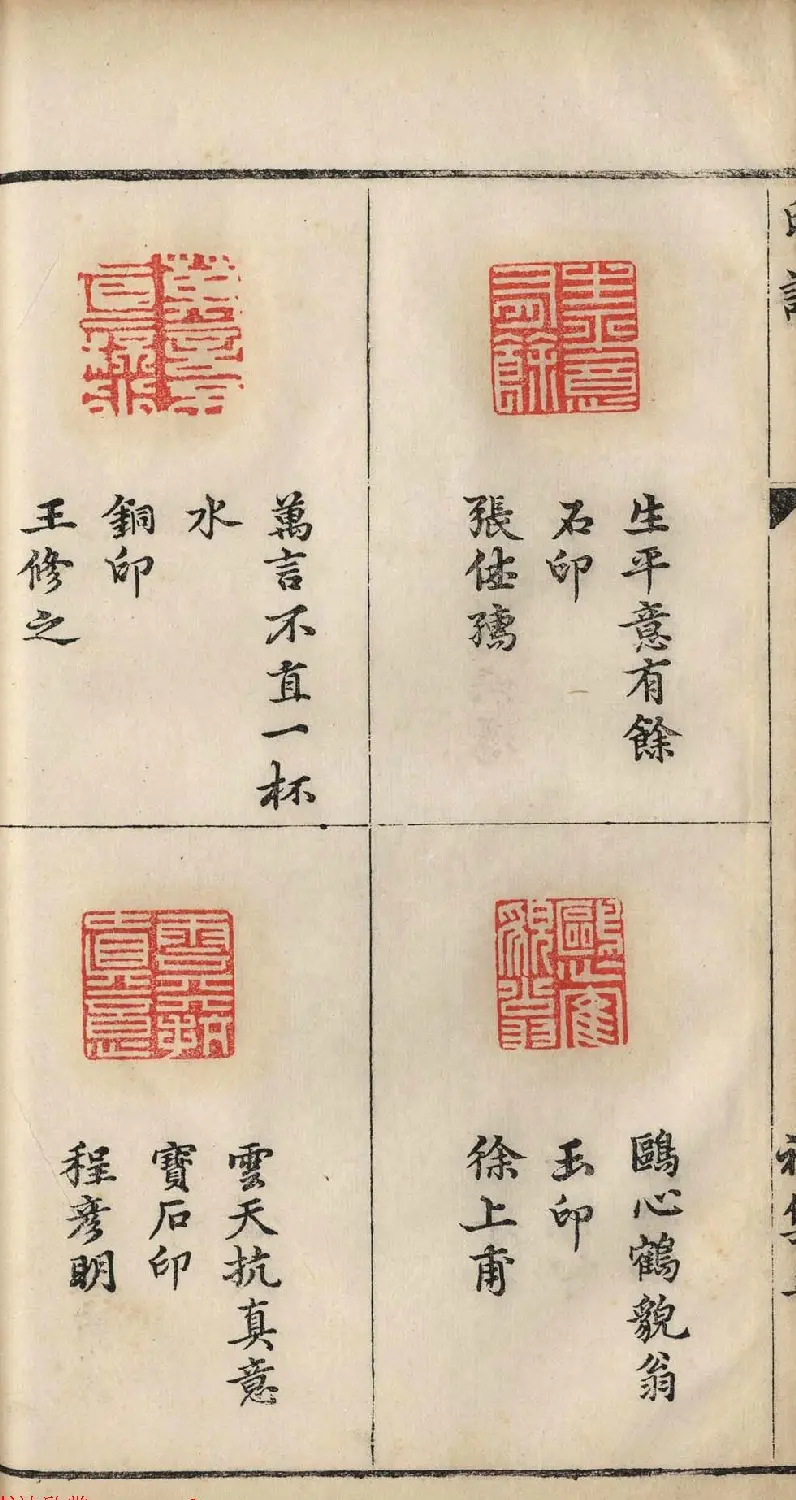 生平意有餘
石印
張仕孺
鷗心鶴貌翁
玉印
徐上甫
萬言不直一杯
水
銅印
王修之
雲天抗真意
寶石印
程彥明